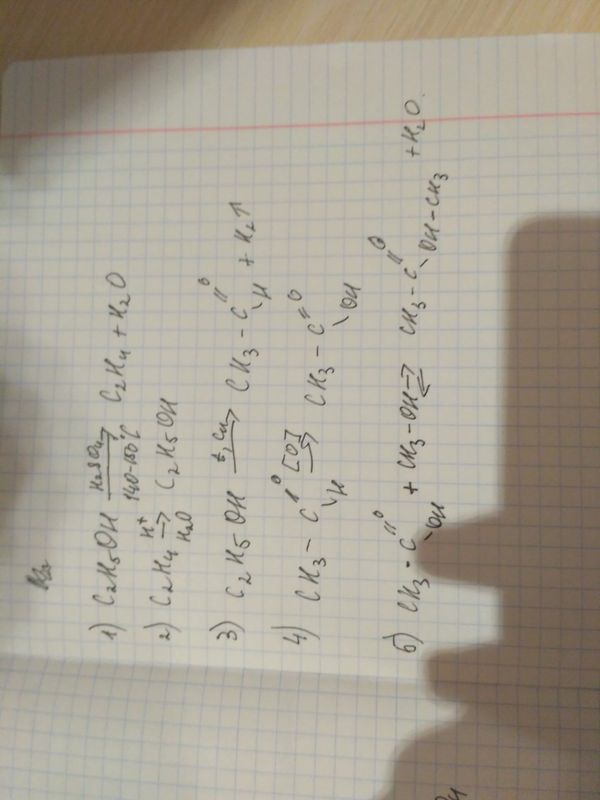 1) C₂H₅OH —H₂SO₄, 140-150°C→ C₂H₄ + H₂O
2) C₂H₄ —H⁺, H₂O→ C₂H₅OH
3) C₂H₅OH —t, Cu→ CH₃-C(=O)-H + H₂↑
4) CH₃-C(=O)-H —[O]→ CH₃-C(=O)-OH
5) CH₃-C(=O)-OH + CH₃-OH ⇄ CH₃-C(=O)-OH-CH₃ + H₂O.